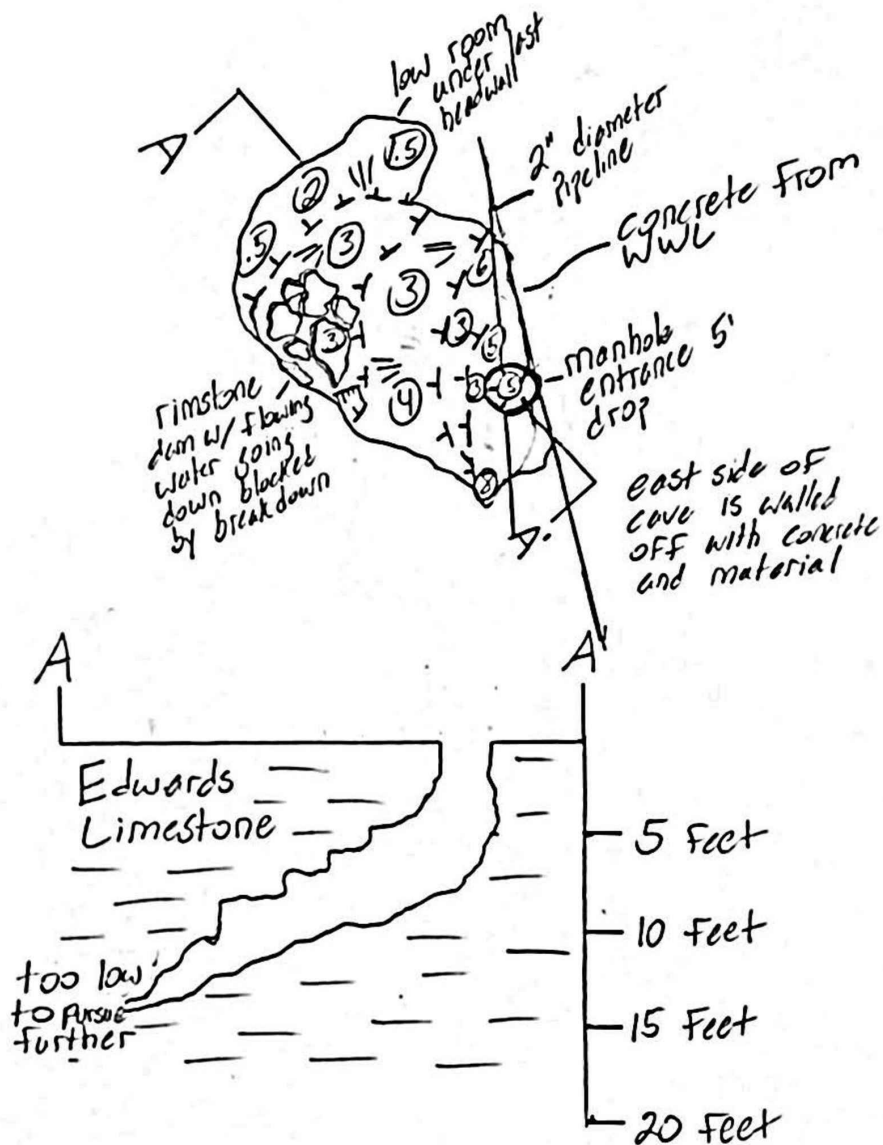 low room
under last
headwall
A
2" diameter
Pipeline
concrete from
WWL
1.5
2
.5
3
3
6
3
3
5
manhole
entrance 5'
drop
3
5
4
8
rimstone
dam w/ flowing
water going
down blocked
by breakdown
A'
east side of
cave is walled
off with concrete
and material
A
A'
Edwards
Limestone
5 Feet
10 Feet
too low
to pursue
further
15 Feet
20 Feet